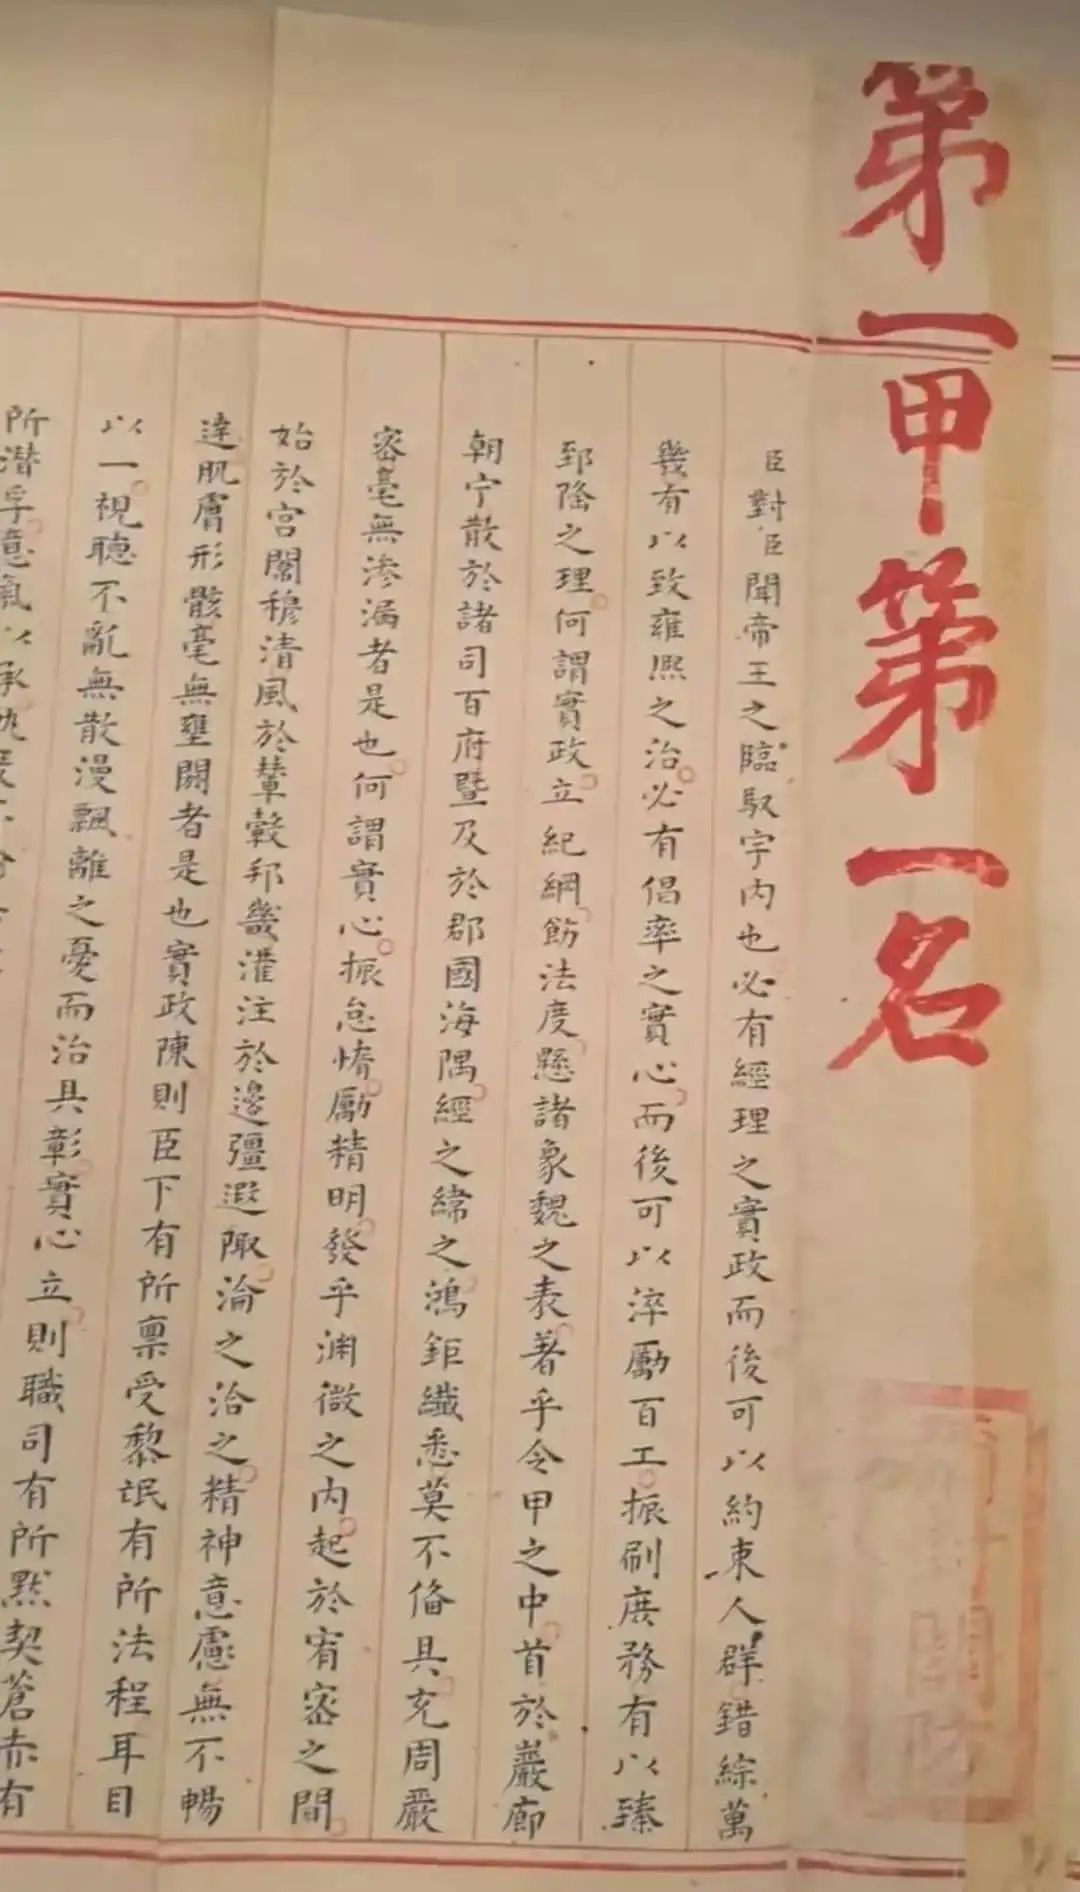 第一甲第一名
臣對臣聞帝王之臨馭宇內也必有經理之實政而後可以約束人群錯綜萬
幾有以致雍熙之治必有倡率之實心而後可以淬勵百工振刷庶務有以臻
郅隆之理何謂實政立紀綱飭法度懸諸象魏之表著乎令甲之中首於巖廊
朝宁散於諸司百府暨及於郡國海隅經之緯之鴻鉅纖悉莫不備具充周嚴
密毫無滲漏者是也何謂實心振怠惰勵精明發乎淵微之內起於宥密之間
始於宮闈穆清風於輦轂邦畿灌注於邊疆遐陬淪之洽之精神意慮無不暢
達肌膚形骸毫無壅閼者是也實政陳則臣下有所稟受黎氓有所法程耳目
以一視聽不亂無散漫飄離之憂而治具彰實心立則職司有所默契蒼赤有
所潛孚意氣以承